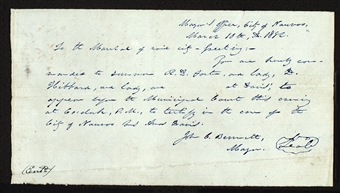 Mayor's Office, City of Nauvoo,
March 10th, 1842.
To the Marshal of said city Greeting:-
You are hereby com-
manded to summon R. D. Foster, and lady, Dr.
Hibbard, and lady, at Davis', to
appear before the Municipal Court this evening
at 6 o'clock, P.M., to testify in the case of the
City of Nauvoo vs. Amos Davis.
John C. Bennett,
Mayor.
Seal